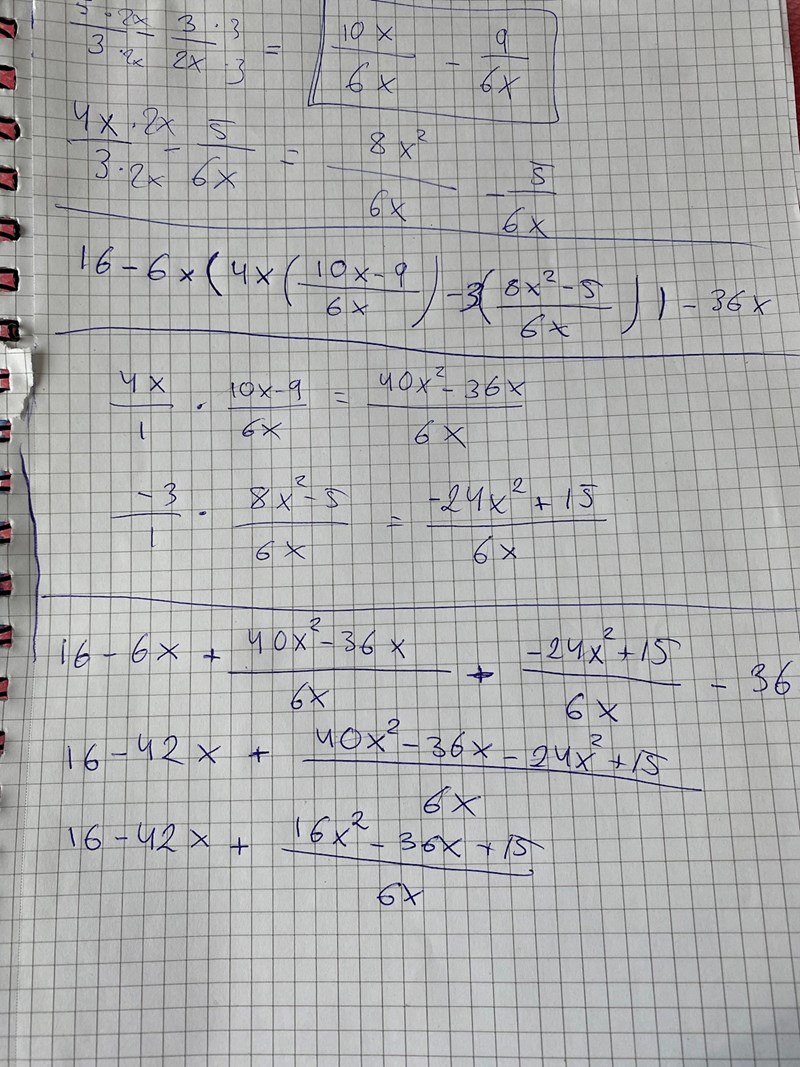 5·2x/3·2x - 3·3/2x·3 = 10x/6x - 9/6x
4x·2x/3·2x - 5/6x = 8x²/6x - 5/6x
16 - 6x(4x(10x-9/6x) - 3(8x²-5/6x)) - 36x
4x/1 · 10x-9/6x = 40x²-36x/6x
-3/1 · 8x²-5/6x = -24x²+15/6x
16 - 6x + 40x²-36x/6x + -24x²+15/6x - 36
16 - 42x + 40x²-36x-24x²+15/6x
16 - 42x + 16x²-36x+15/6x